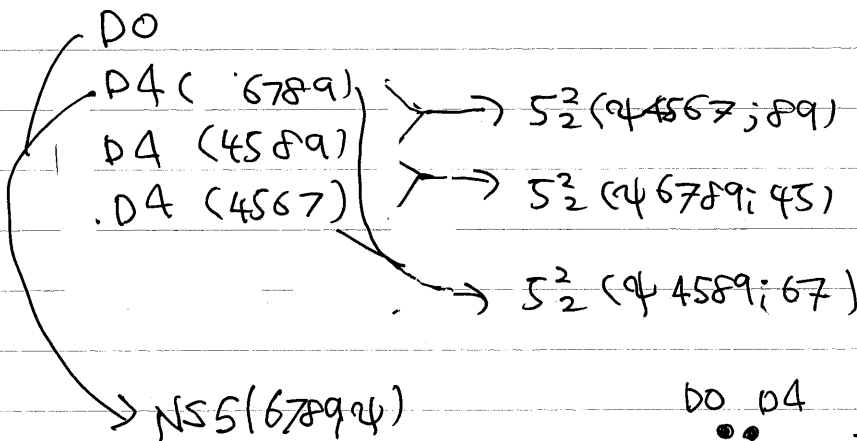 D0
D4 ( 6789)
D4 (4589)
D4 (4567)
5²₂ (ψ4567;89)
5²₂ (ψ6789;45)
5²₂ (ψ4589;67)
NS5(6789ψ)
D0 D4